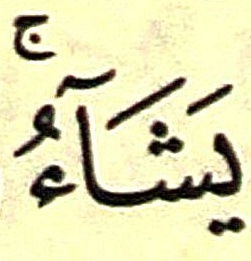 يَشَآءُ ۚ